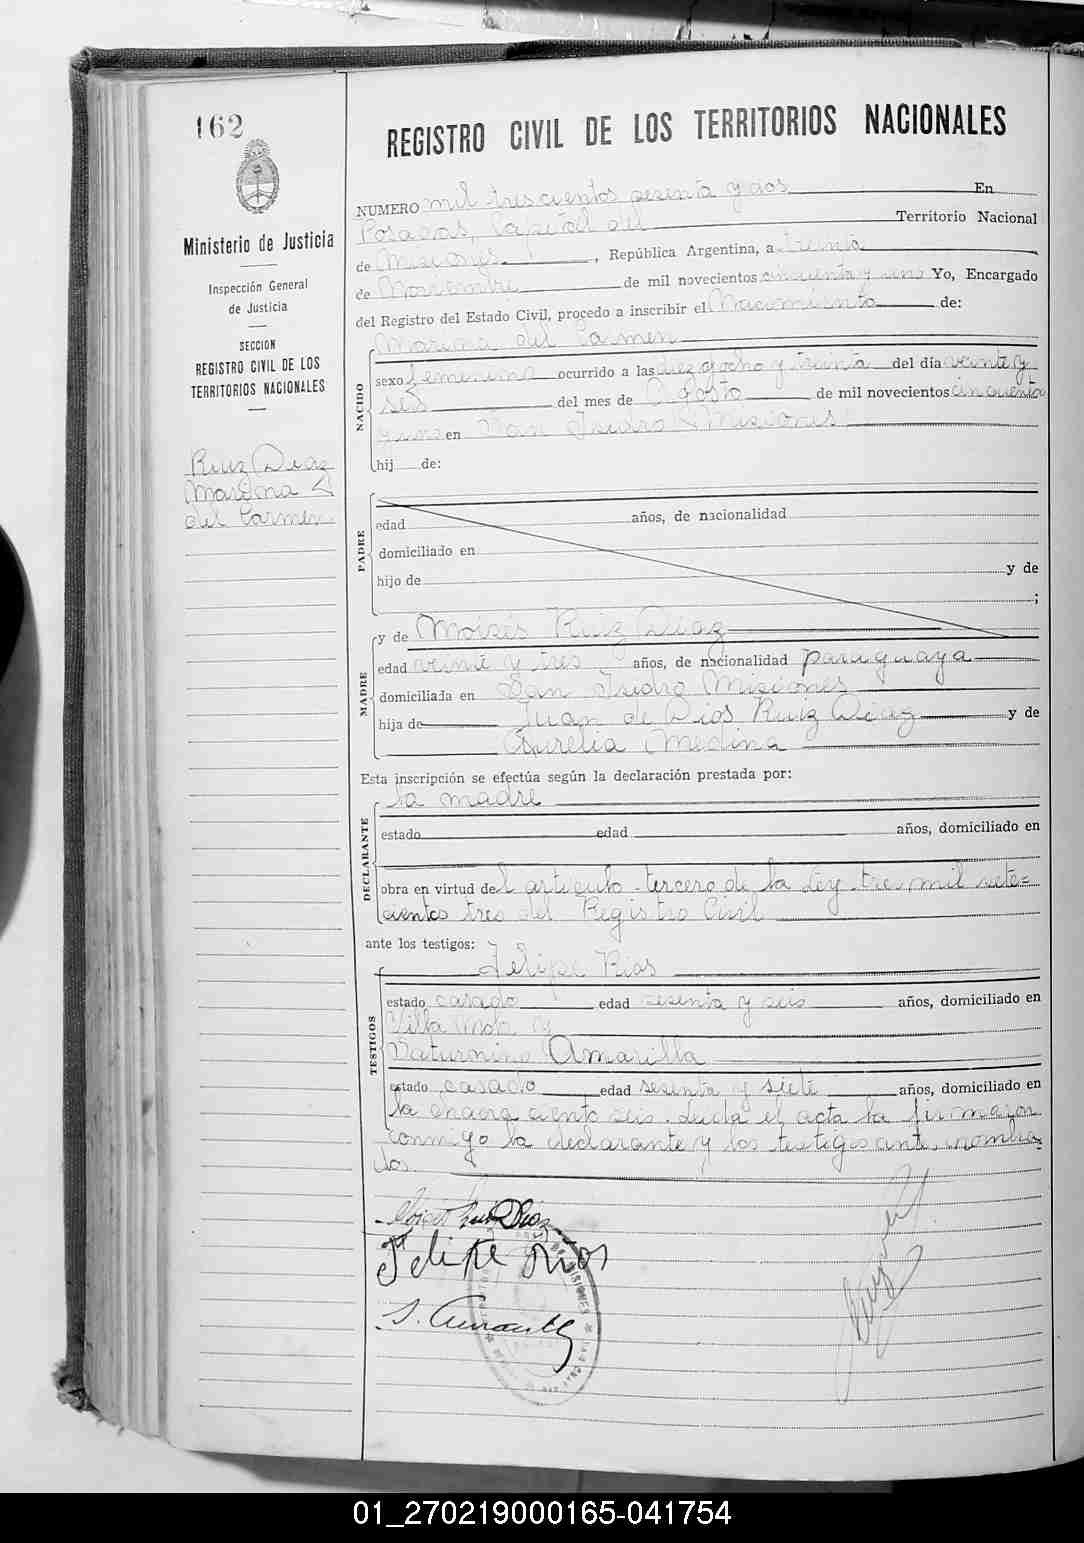 162
Ministerio de Justicia
Inspección General
de Justicia
SECCION
REGISTRO CIVIL DE LOS
TERRITORIOS NACIONALES
Ruiz Diaz
del Carmen
REGISTRO CIVIL DE LOS TERRITORIOS NACIONALES
NUMERO mil trescientos sesenta y dos En
Posadas, Capital del Territorio Nacional
de Misiones, República Argentina, a treinta
de Noviembre de mil novecientos cincuenta y uno Yo, Encargado
del Registro del Estado Civil, procedo a inscribir el Nacimiento de:
del Carmen
NACIDO
sexo femenino ocurrido a las diez y ocho y treinta del día veinte y
seis del mes de Agosto de mil novecientos cincuenta
y uno en San Isidro Misiones
hij de:
PADRE
edad años, de nacionalidad
domiciliado en
hijo de y de
;
MADRE
y de Moisés Ruiz Diaz
edad veinte y tres años, de nacionalidad paraguaya
domiciliada en San Isidro Misiones
hija de Juan de Dios Ruiz Diaz y de
Aurelia Medina
Esta inscripción se efectúa según la declaración prestada por:
DECLARANTE
la madre
estado edad años, domiciliado en
obra en virtud del articulo tercero de la Ley tres mil sete=
cientos tres del Registro Civil
ante los testigos:
TESTIGOS
Felipe Rios
estado casado edad sesenta y seis años, domiciliado en
Villa y
Saturnino Amarilla
estado casado edad sesenta y siete años, domiciliado en
la chacra ciento seis. Leida el acta la firmaron
conmigo la declarante y los testigos ante nombra
dos.
Ruiz Diaz
Felipe Rios
S. Amarilla
MISIONES
01_270219000165-041754